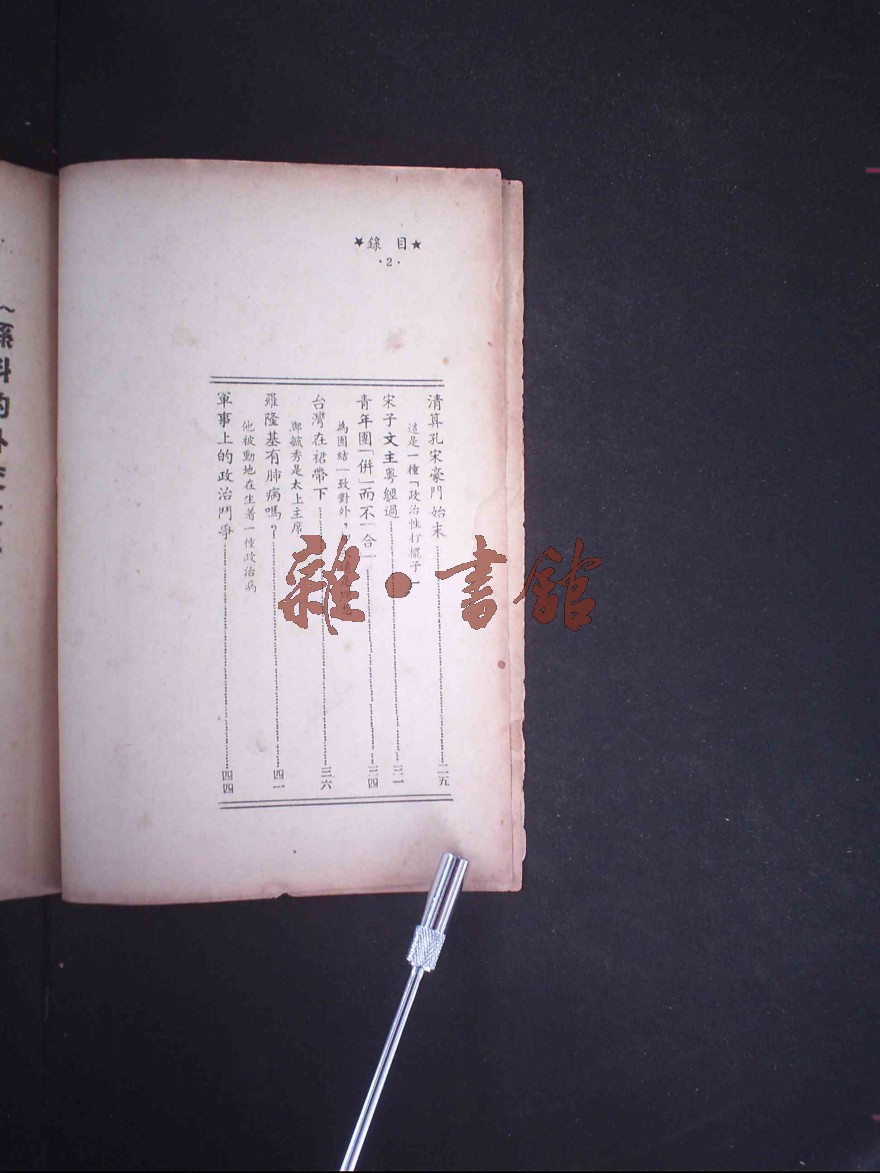 ★目錄★
·2·
清算孔宋豪門始末……二五
這是一種「政治性打擺子」
宋子文主粵經過……三一
青年團「併」而不「合」……三四
為團結一致對外,
台灣在裙帶下……三六
鄭毓秀是太上主席
羅隆基有肺病嗎?……四一
他被動地在生著一種政治病
軍事上的政治鬥爭……四四
雜·書館
孫科的